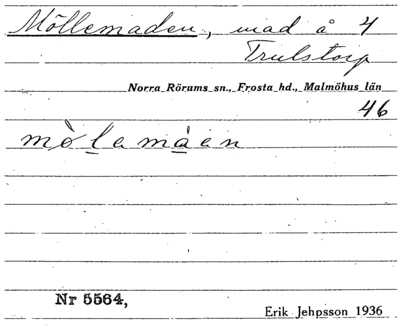 Möllemaden, mad å 4
Trulstorp
Norra Rörums sn., Frosta hd., Malmöhus län
46
mòlamáen
Nr 5564,
Erik Jehpsson 1936